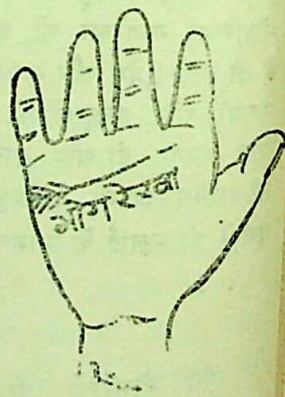 भोग रेखा